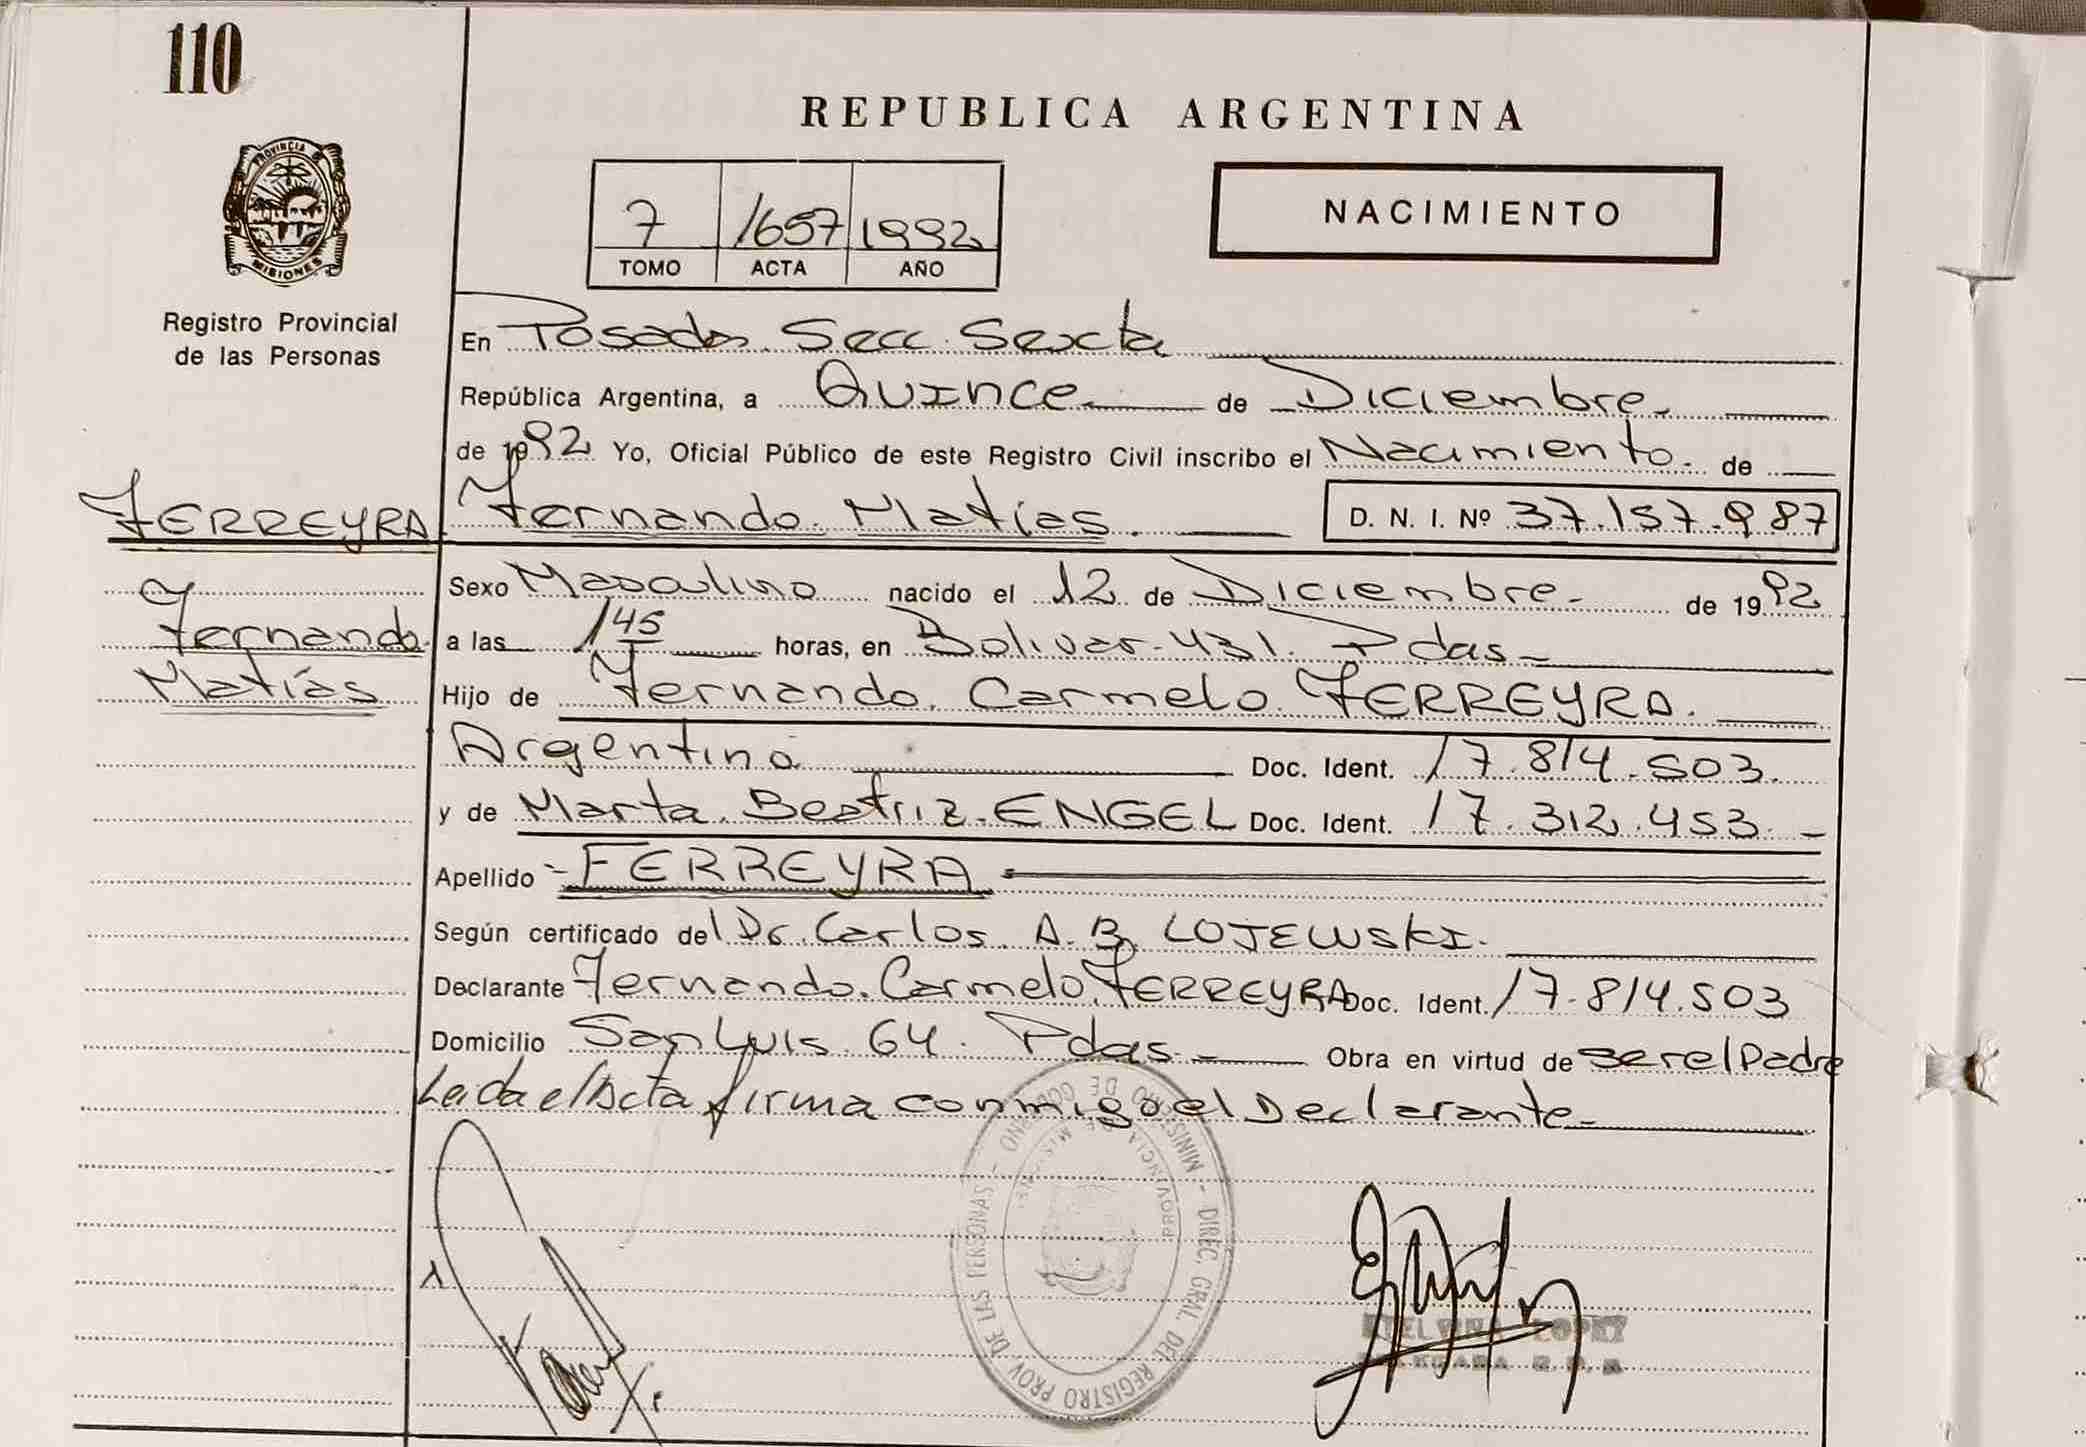 110
REPUBLICA ARGENTINA
PROVINCIA D
MISIONES
Registro Provincial
de las Personas
7 1657 1992
TOMO ACTA AÑO
NACIMIENTO
En Posadas Secc. Sexta
República Argentina, a Quince de Diciembre
de 1992 Yo, Oficial Público de este Registro Civil inscribo el Nacimiento de
FERREYRA Fernando Matías D. N. I. Nº 37.157.987
Fernando
Matías
Sexo Masculino nacido el 12 de Diciembre de 1992
a las 145 horas, en Bolivar 431 Pdas
Hijo de Fernando Carmelo FERREYRA
Argentino Doc. Ident. 17.814.503
y de Marta Beatriz ENGEL Doc. Ident. 17.312.453
Apellido FERREYRA
Según certificado del Dr. Carlos A. B. LOJEWSKI
Declarante Fernando Carmelo FERREYRA Doc. Ident. 17.814.503
Domicilio San Luis 64 Pdas Obra en virtud de ser el Padre
Leida el Acta firma conmigo el Declarante
MINISTERIO DE GOBIERNO - DIREC. GRAL. DEL REGISTRO PROV DE LAS PERSONAS
PROVINCIA DE MISIONES
LOPEZ